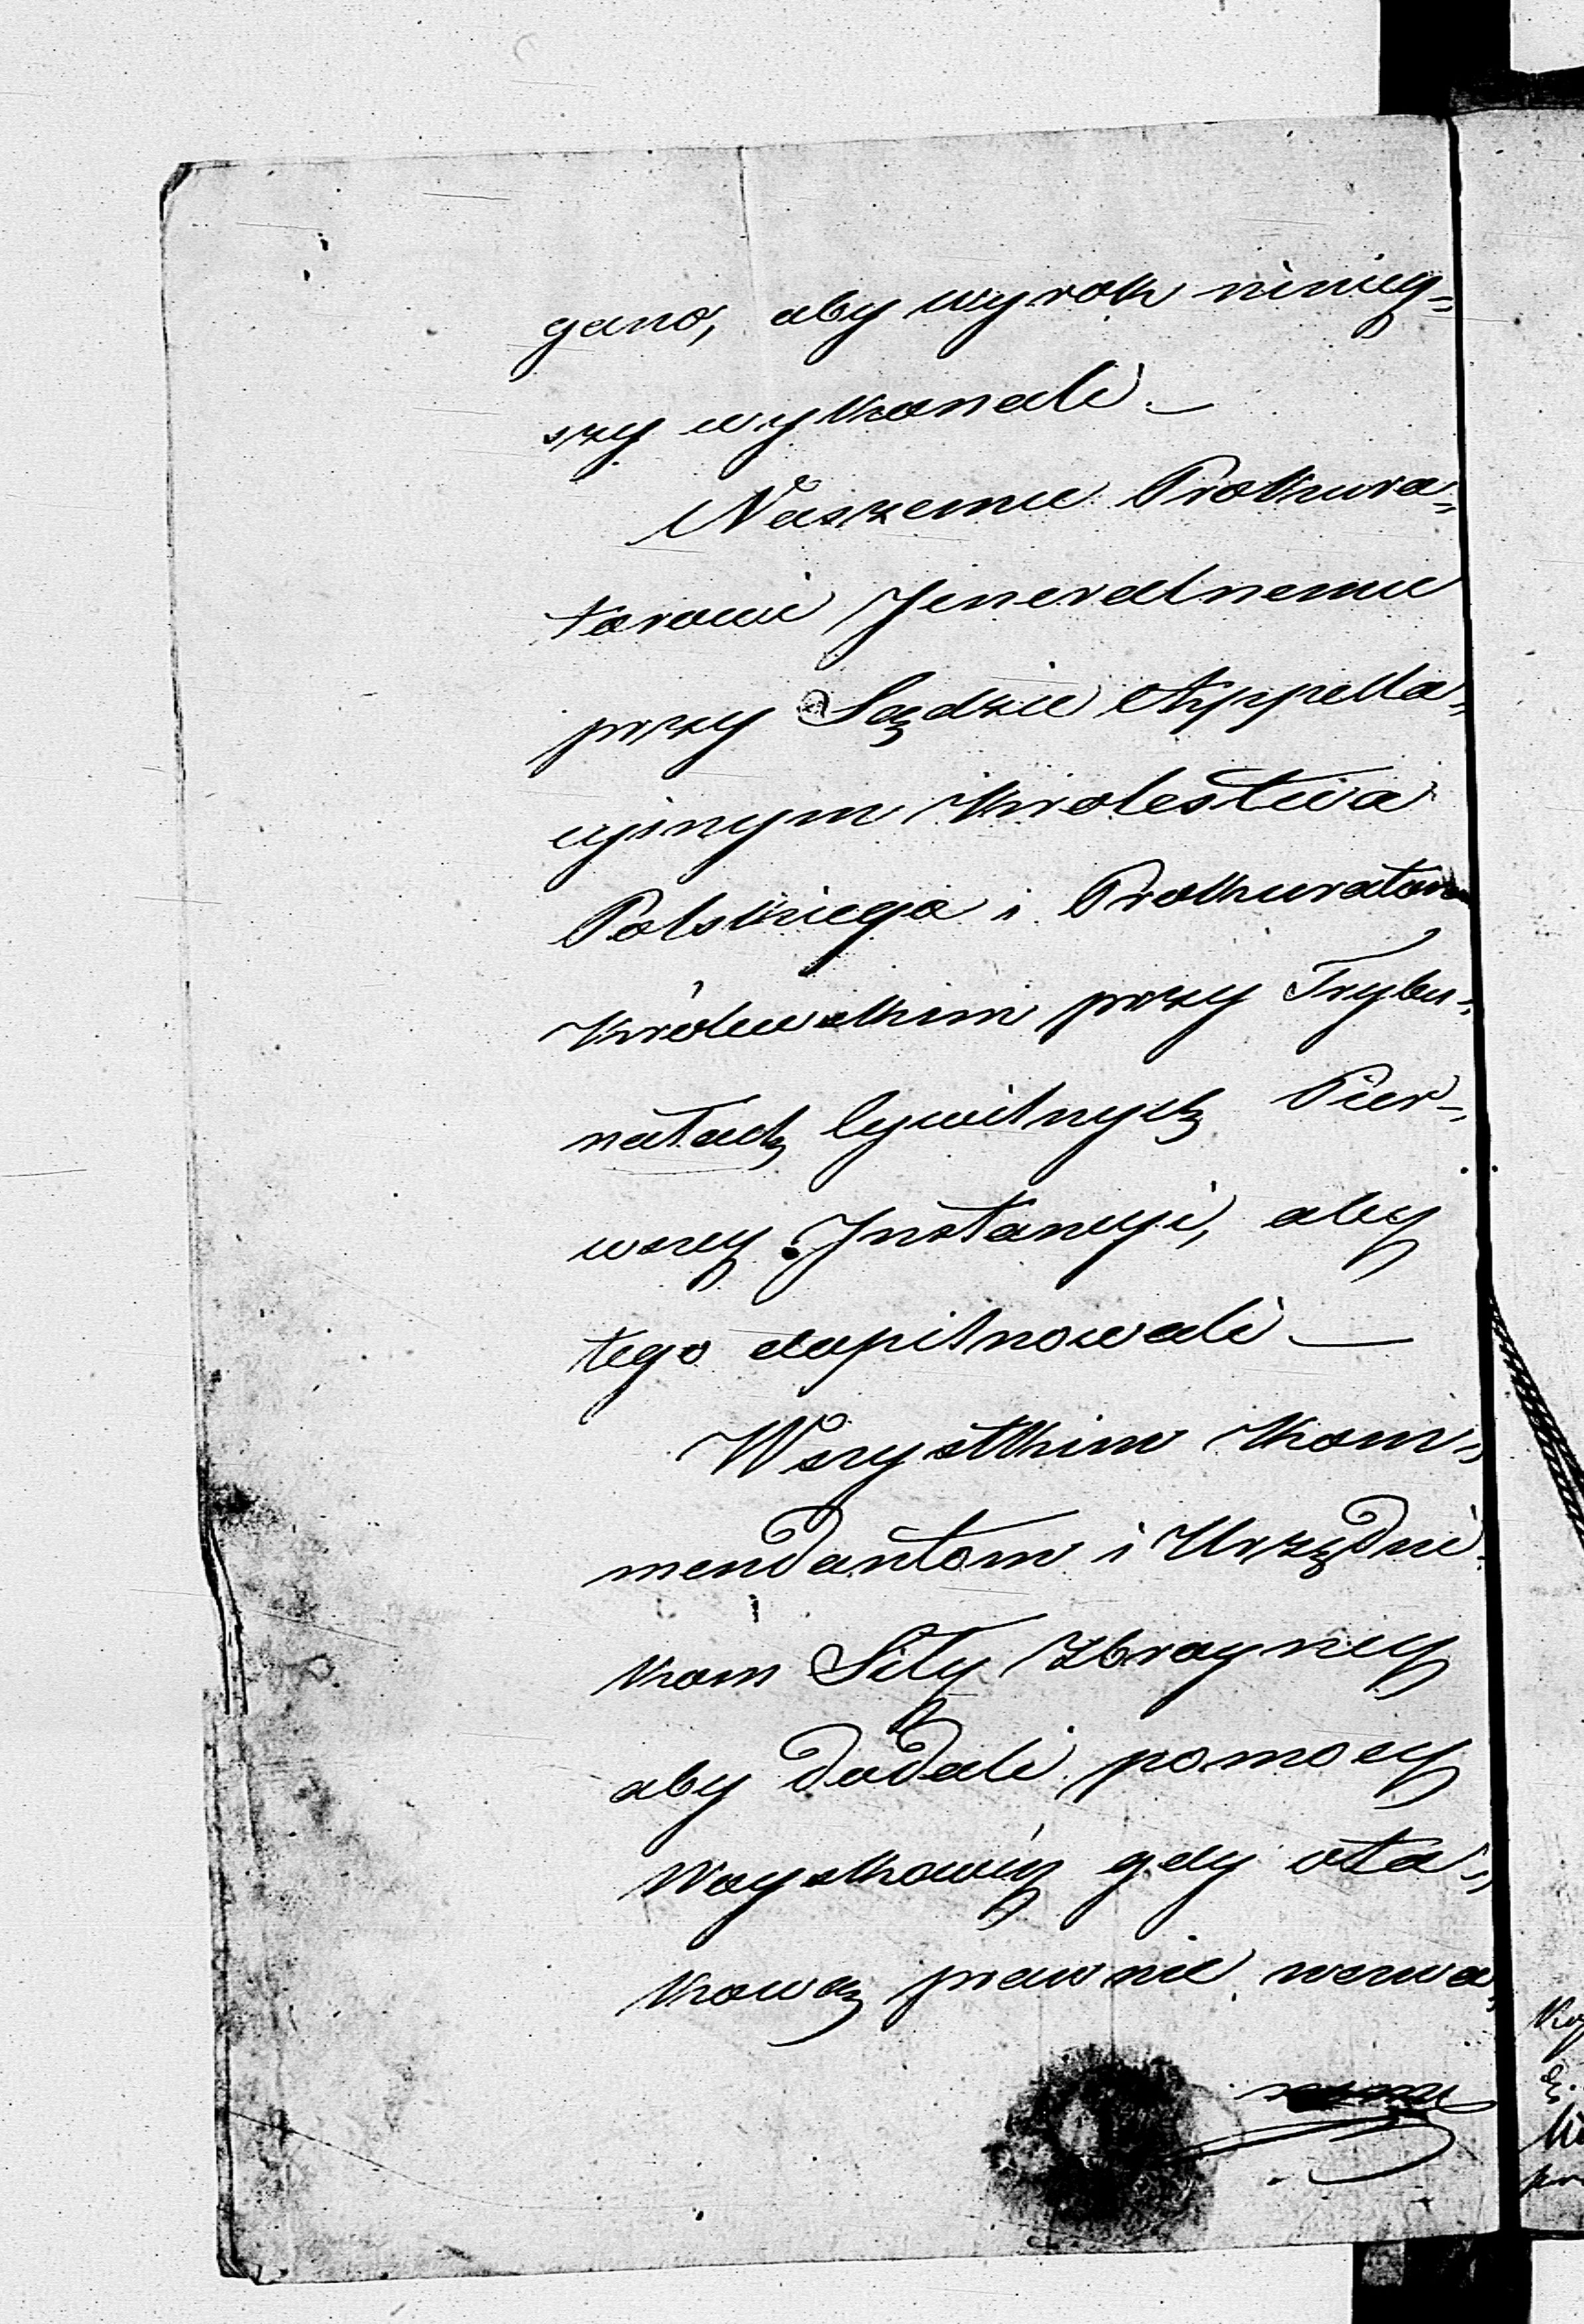 gano, aby wyrok niniey=
szy wykonali.—
Naszemu Prokura=
torowi Jeneralnemu
przy Sądzie Appella=
cyinym Krolestwa
Polskiego i Prokuratorom
Królewskim przy Trybu=
nałach Cywilnych Pier=
wszey Instancyi, aby
tego dopilnowali—
Wszystkim Kom=
mendantom i Urzędni=
kom Siły zbroyney
aby dodali pomocy
Woyskowey gdy o ta=
kową prawnie wezwa=